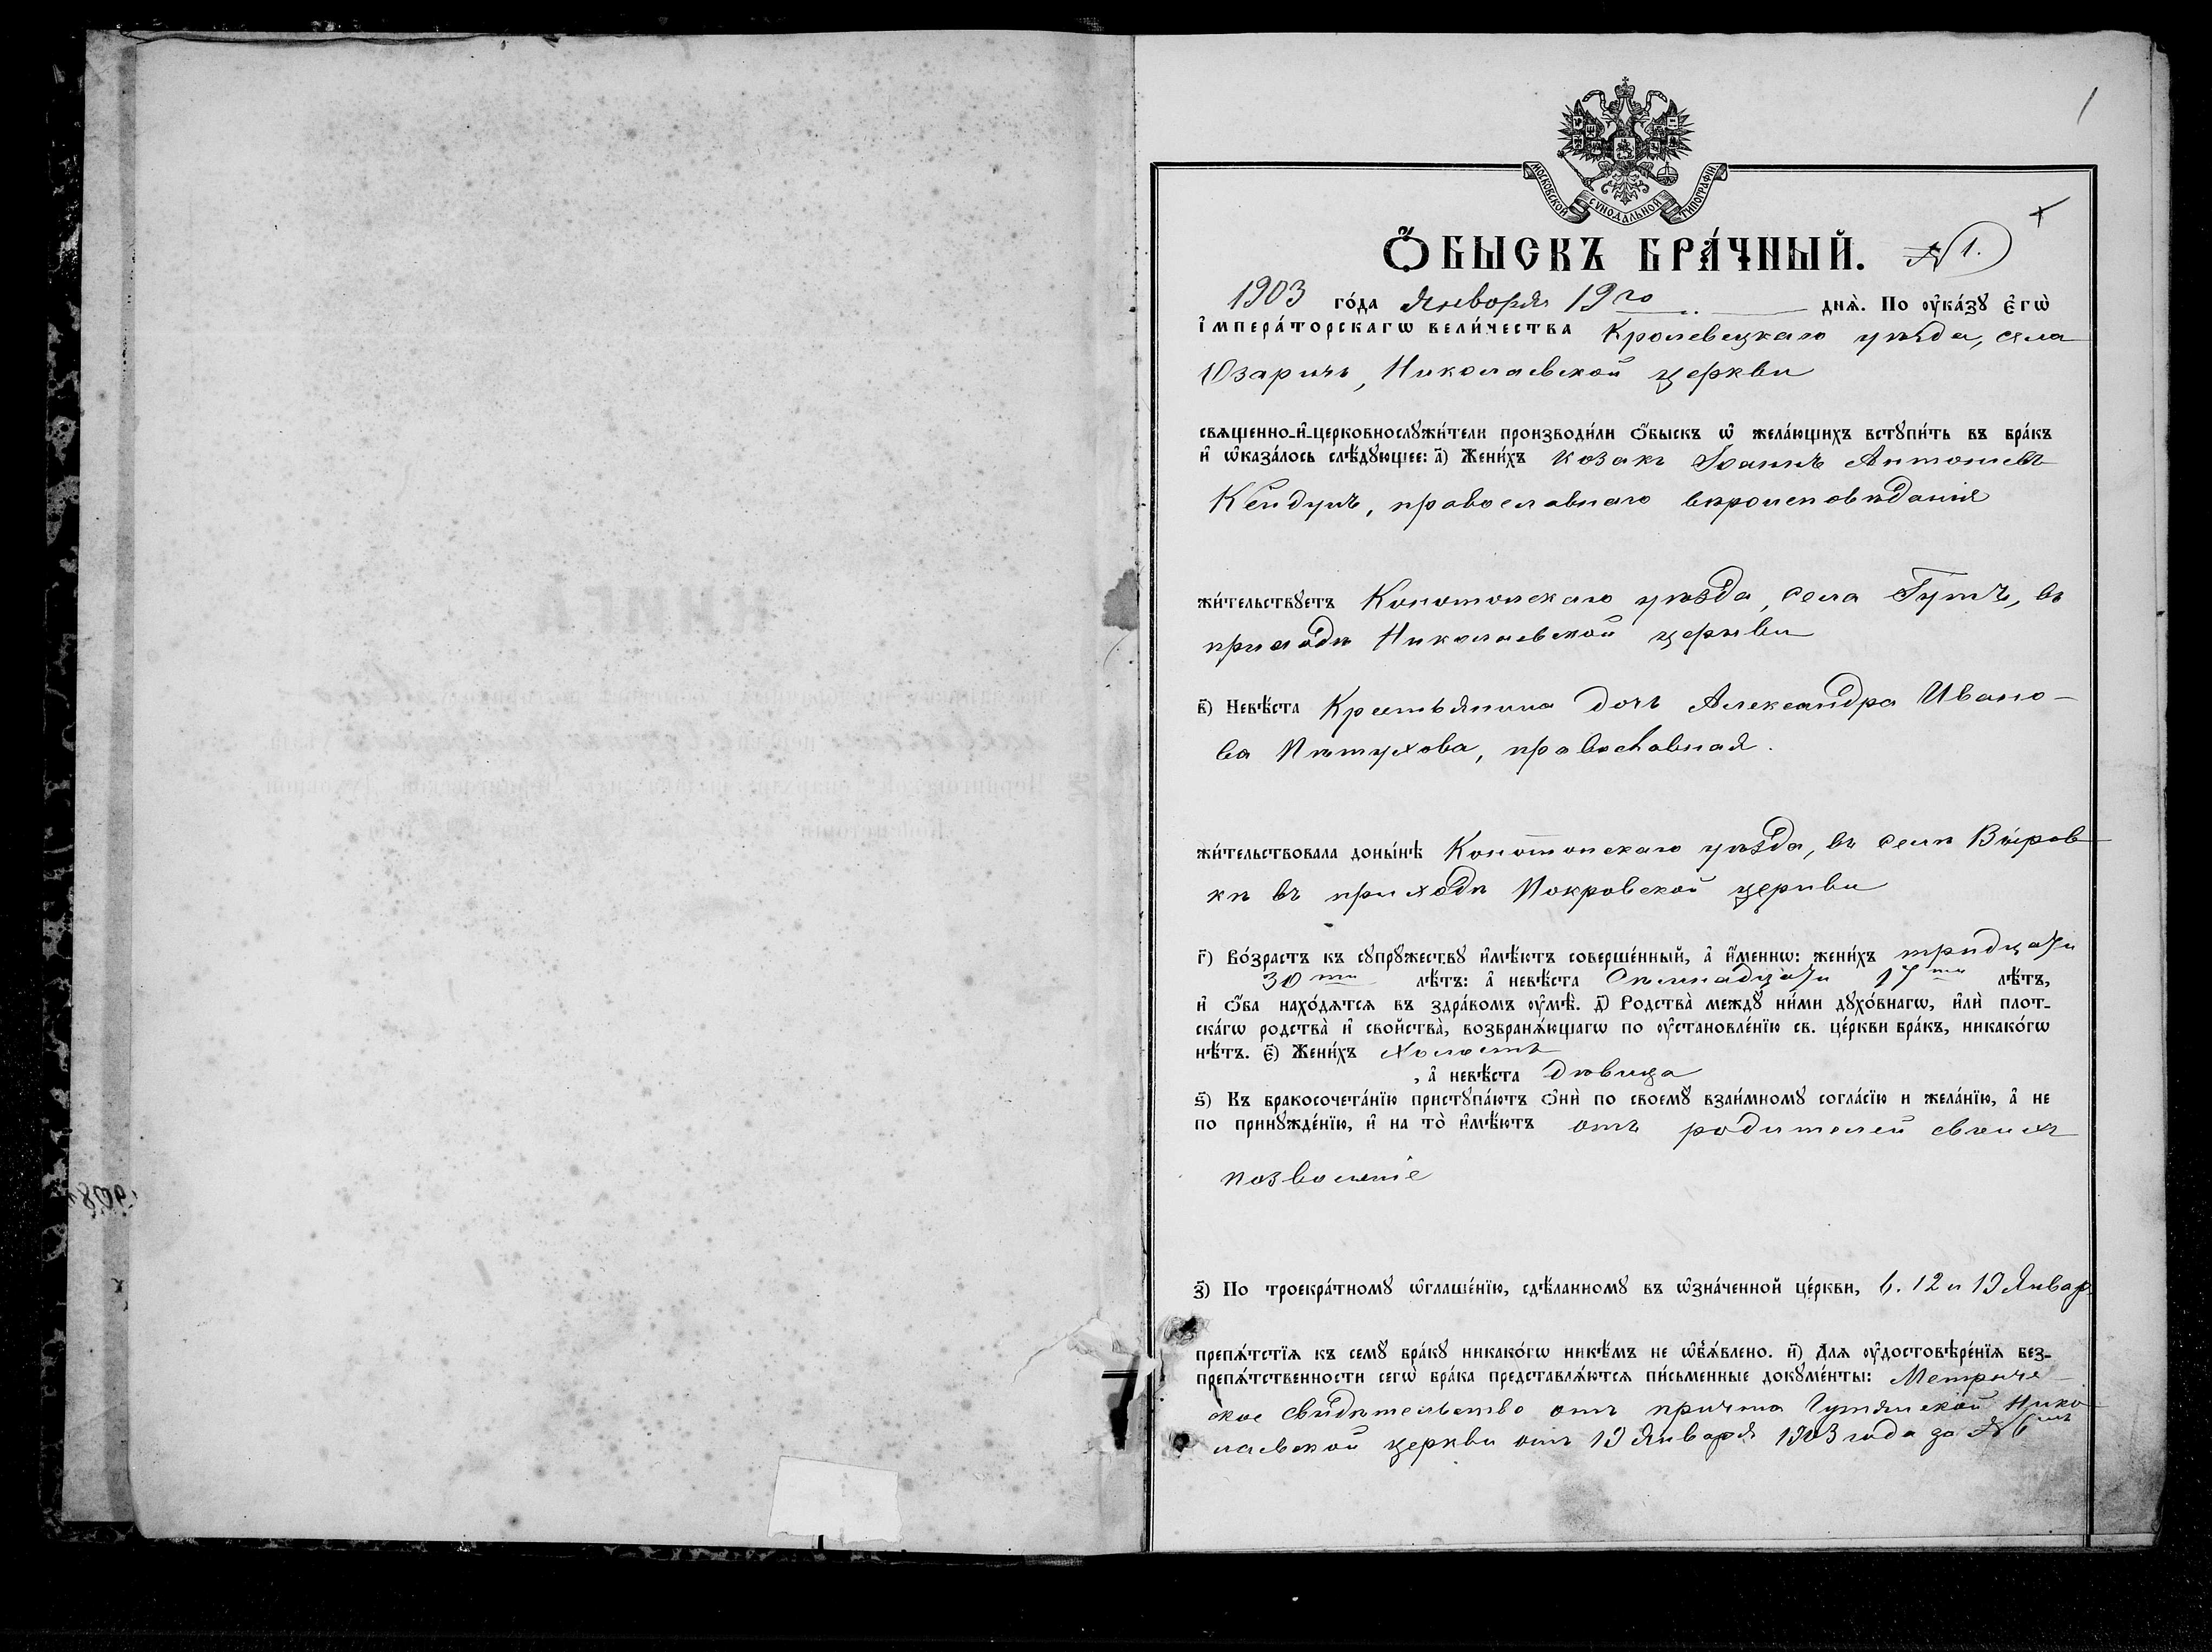 1
МОСКОВСКОЙ СѴНОДАЛЬНОЙ ТИПОГРАФІИ.
Ѻ҆́БЫСКЪ БРА́ЧНЫЙ. № 1.
1903 го́да Января 19го днѧ̀. По ᲂу҆ка́зꙋ є҆гѡ̀
і҆мпера́торскагѡ вели́чества Кролевецкаго уѣзда, села
Юзаричъ, Николаевской церкви
свѧщенно-и҆-церковнослꙋжи́тели производи́ли ѻ҆́быскъ ѡ҆ жела́ющихъ встꙋпи́ть въ бра́къ
и҆ ѡ҆каза́лось слѣ́дꙋющее: а҃) Жени́хъ козакъ Іоаннъ Антоніевъ
православнаго вѣроисповѣданія
жи́тельствꙋетъ Конотопскаго уѣзда, села Гутъ, въ
приходѣ Николаевской церкви
в҃) Невѣ́ста Крестьянина дочь Александра Ивано-
ва Пѣтухова, православная.
жи́тельствовала доны́нѣ Конотопскаго уѣзда, въ селѣ Выров-
кѣ въ приходѣ Покровской церкви
г҃) Во́зрастъ къ сꙋпрꙋ́жествꙋ и҆мѣ́ютъ соверше́нный, а҆ и҆́меннѡ: жени́хъ тридцати
30ти лѣ́тъ: а҆ невѣ́ста Семнадцати 17ти лѣ́тъ,
и҆ ѻ҆́ба нахо́дѧтсѧ въ здра́вомъ ᲂу҆мѣ̀. д҃) Родства̀ междꙋ̀ ни́ми дꙋхо́внагѡ, и҆лѝ плот-
ска́гѡ родства̀ и҆ сво́йства̀, возбранѧ́ющагѡ по ᲂу҆становле́нїю св. це́ркви бра́къ, никако́гѡ
нѣ́тъ. є҃) Жени́хъ холостъ
, а҆ невѣ́ста дѣвица
ѕ҃) Къ бракосочета́нїю пристꙋпа́ютъ ѻ҆нѝ по своемꙋ̀ взаи́мномꙋ согла́сїю и жела́нїю, а҆ не
по принꙋжде́нїю, и҆ на то̀ и҆мѣ́ютъ отъ родителей своихъ
позволеніе
з҃) По троекра́тномꙋ ѡ҆глаше́нїю, сдѣ́ланномꙋ въ ѡ҆зна́ченной це́ркви, 6. 12 и 19 Январ
препѧ́тстїѧ къ семꙋ̀ бра́кꙋ никако́гѡ никѣ́мъ не ѡ҆б̾ѧ́влено. и҃) Длѧ ᲂу҆достовѣре́нїѧ без-
препѧ́тственности сегѡ̀ бра́ка представлѧ́ютсѧ пи́сьменные докꙋме́нты: Метриче-
ское свидѣтельство отъ причта Гутянской Нико-
лаевской церкви отъ 19 Января 1903 года за № 6мъ